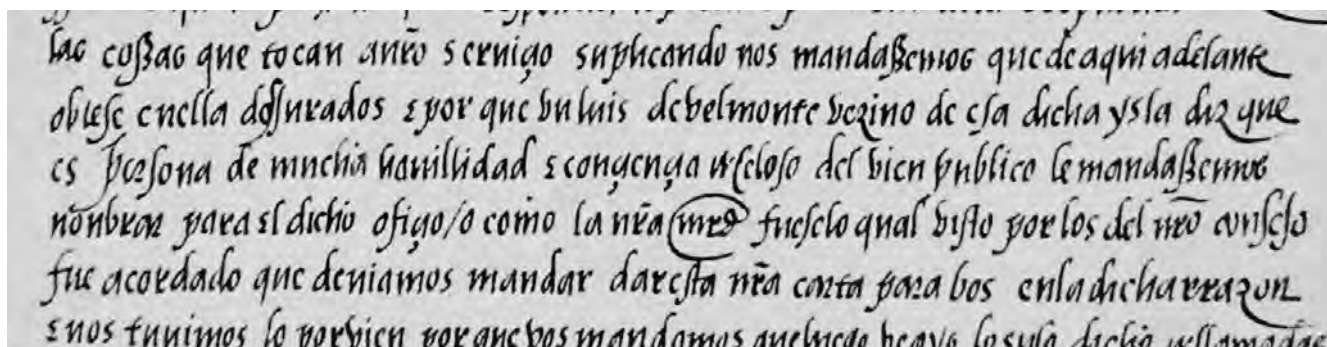 las cossas que tocan a nro serviçio suplicando nos mandassemos que de aqui adelante
obiese en ella dos jurados e por que luis de belmonte bezino de esa dicha ysla diz que
es persona de mucha havillidad e conçençia e çeloso del bien publico le mandassemos
nonbrar para el dicho ofiçio / o como la nra mrd fuese lo qual bisto por los del nro consejo
fue acordado que deviamos mandar dar esta nra carta para bos en la dicha rrazon
e nos tuvimos lo por bien por que vos mandamos que luego